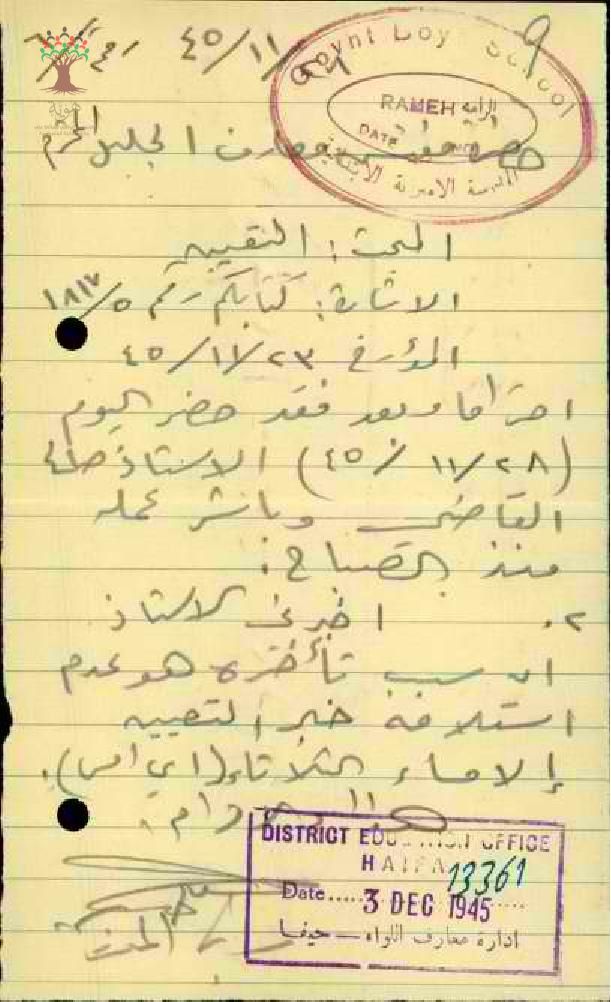 ٤٥/١١/
Govnt Boy School
RAMEH الرامه
DATE
المدرسة الاميرية الابتدائية
حضرة مفتش معارف الجليل المحترم
المبحث: التعيين
الاشارة: كتابكم رقم ٥/١٨١٧
المؤرخ ٤٥/١١/٢٣
احتراما وبعد فقد حضر اليوم
(٤٥/١١/٢٨) الاستاذ طه
القاضي وباشر عمله
منذ الصباح.
٢. اخبرني الاستاذ
ان سبب تأخره هو عدم
استلامه خبر التعيين
إلا مساء الثلاثاء (اي امس).
DISTRICT EDUCATION OFFICE
HAIFA
13361
Date 3 DEC 1945
ادارة معارف اللواء — حيفا